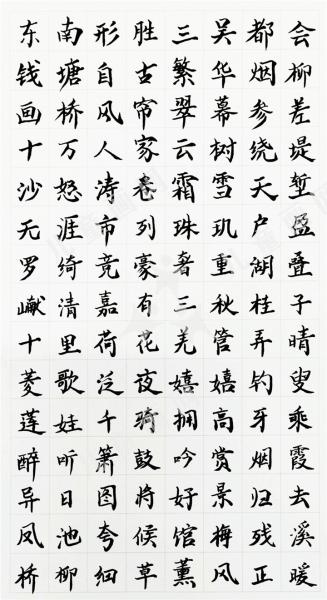 东南形胜三吴都会
钱塘自古繁华烟柳
画桥风帘翠幕参差
十万人家云树绕堤
沙怒涛卷霜雪天堑
无涯市列珠玑户盈
罗绮竞豪奢重湖叠
𪩘清嘉有三秋桂子
十里荷花羌管弄晴
菱歌泛夜嬉嬉钓叟
莲娃千骑拥高牙乘
醉听箫鼓吟赏烟霞
异日图将好景归去
凤池夸候馆梅残溪
桥柳细草薰风正暖